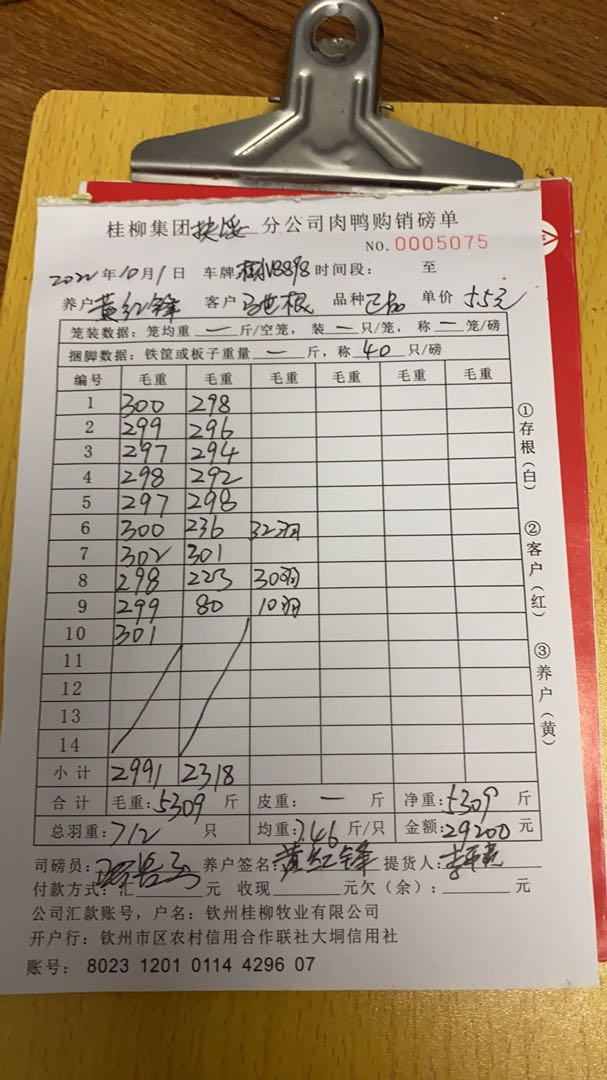 桂柳集团扶绥分公司肉鸭购销磅单
NO. 0005075
2022年10月1日 车牌 8898 时间段： 至
养户 黄红锋 客户 马世根 品种 单价 5.5元
笼装数据：笼均重 — 斤/空笼，装 — 只/笼，称 — 笼/磅
捆脚数据：铁筐或板子重量 — 斤，称 40 只/磅
编号 毛重 毛重 毛重 毛重 毛重 毛重
1 300 298
2 299 296
3 297 294
4 298 292
5 297 298
6 300 236 32羽
7 302 301
8 298 223 30羽
9 299 80 10羽
10 301
11
12
13
14
小计 2991 2318
合计 毛重：5309 斤 皮重：— 斤 净重：5309 斤
总羽重：712 只 均重：7.46 斤/只 金额：29200 元
司磅员： 养户签名：黄红锋 提货人：
付款方式：汇 元 收现 元欠（余）： 元
公司汇款账号，户名：钦州桂柳牧业有限公司
开户行：钦州市区农村信用合作联社大垌信用社
账号： 8023 1201 0114 4296 07
①存根（白）
②客户（红）
③养户（黄）